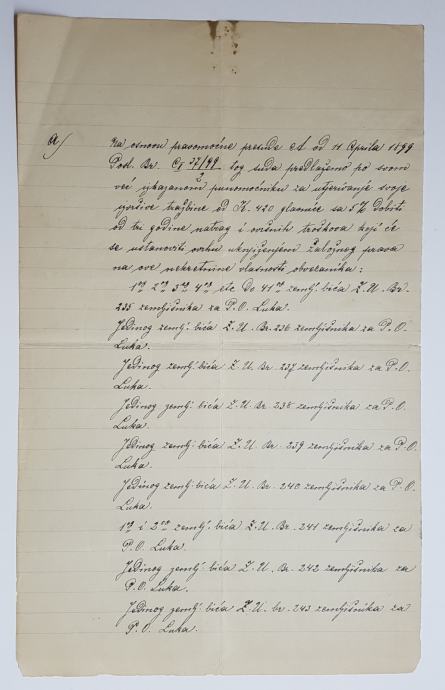 a/ Na osnovu pravomoćne presude A od 11 Aprila 1899
Posl. Br. Cg 37/99 tog suda predlažemo po svom
2
već iskazanom punomoćniku za utjerivanje svoje
izvršive tražbine od K. 420 glavnice sa 5% dobiti
od tri godine natrag i ovršnih troškova koji će
se ustanoviti ovrhu uknjiženjem založnog prava
na ove nekretnine vlasnosti obvezanika:
1og 2og 3og 4og etc. Do 41og zemlj. bića Z. U. Br.
235 zemljišnika za P. O. Luka.
Jedinog zemlj. bića Z. U. Br. 236 zemljišnika za P. O.
Luka.
Jedinog zemlj. bića Z. U. Br. 237 zemljišnika za P. O.
Luka.
Jedinog zemlj. bića Z. U. Br. 238 zemljišnika za P. O.
Luka.
Jedinog zemlj. bića Z. U. Br. 239 zemljišnika za P. O.
Luka.
Jedinog zemlj. bića Z. U. Br. 240 zemljišnika za P. O.
Luka.
1og i 2og zemlj. bića Z. U. Br. 241 zemljišnika za
P. O. Luka.
Jedinog zemlj. bića Z. U. Br. 242 zemljišnika za
P. O. Luka.
Jedinog zemlj. bića Z. U. br. 243 zemljišnika za
P. O. Luka.